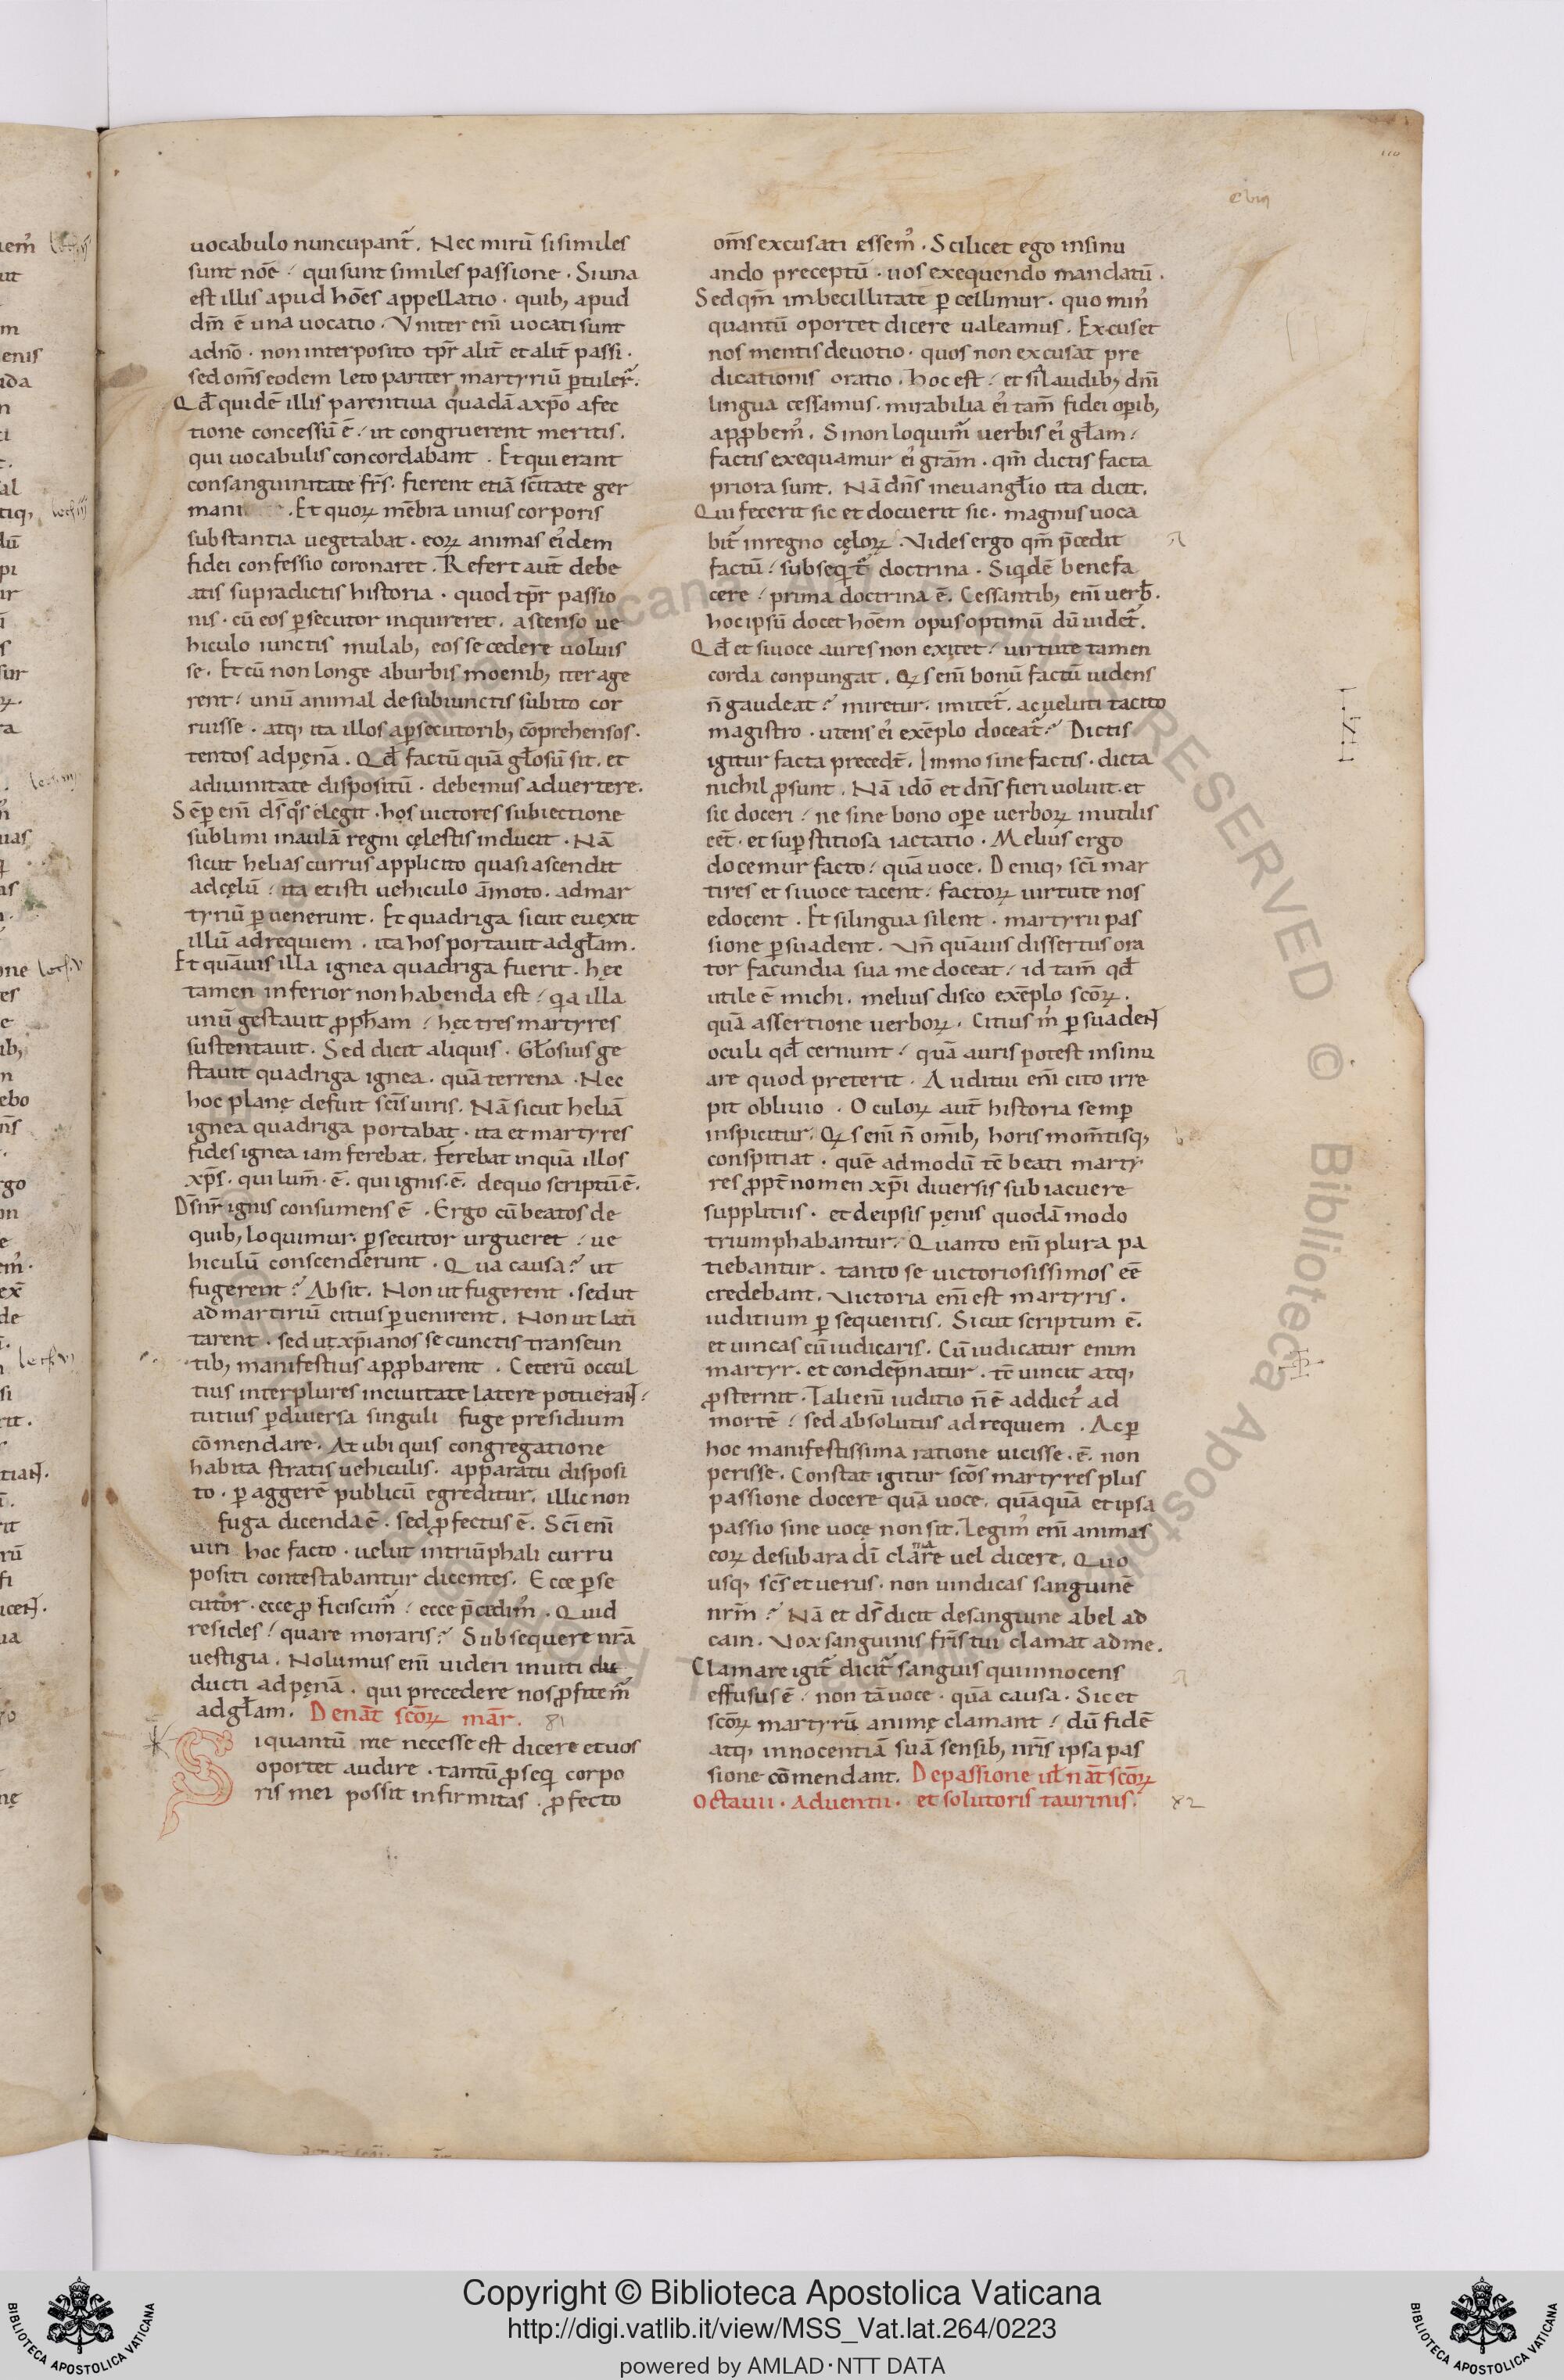 uocabulo nuncupant᷑. Nec mirū si similes
sunt nōe / qui sunt similes passione. Si una
est illis apud hōēs appellatio. quib; apud
dm̄ ē una uocatio. Vniter eni᷑ uocati sunt
adnō. non interposito tp̄r alit᷑ et alit᷑ passi.
sed om̄s eodem leto pariter martyriū ꝑtuler᷑.
Qđ quidē illis parentiua quadā axp̄o afec
tione concessū ē / ut congruerent meritis.
qui uocabulis concordabant. Et qui erant
consanguinitate fr̄s. fierent etiā sc̄itate ger
mani . Et quoꝝ mēbra unius corporis
substantia uegetabat. eoꝝ animas ei᷒dem
fidei confessio coronaret. Refert aut̄ debe
atis supradictis historia. quod tp̄r passio
nis. cū eos ꝑsecutor inquireret. ascenso ue
hiculo iunctis mulab; eos secedere uoluis
se. Et cū non longe aburbis moenib; iter age
rent / unū animal desubiunctis subito cor
ruisse. atq; ita illos aꝑsecutorib; cōprehensos.
tentos adpęnā. Qđ factū quā gl̄osū sit. et
adiuinitate dispositū. debemus aduertere.
Sēꝑ eni᷑ ds̄ qͦs elegit. hos uictores subiectione
sublimi inaulā regni cęlestis inducit. Nā
sicut helias currus applicito quasi ascendit
adcęlū / ita et isti uehiculo āmoto. admar
tyriū ꝑuenerunt. Et quadriga sicut euexit
illū adrequiem. ita hos portauit adgl̄am.
Et quāuis illa ignea quadriga fuerit. hęc
tamen inferior non habenda est / qͥa illa
unū gestauit ꝓph̄am / hęc tres martyres
sustentauit. Sed dicit aliquis. Gl̄osius ge
stauit quadriga ignea. quā terrena. Nec
hoc planę defuit sc̄is uiris. Nā sicut heliā
ignea quadriga portabat. ita et martyres
fides ignea iam ferebat. Ferebat inquā illos
xp̄s. qui lum̄. ē. qui ignis. ē. dequo scriptū. ē.
Ds̄nr̄ ignis consumens ē. Ergo cū beatos de
quib; loquimur. ꝑsecutor urgueret / ue
hiculū conscenderunt. Qua causa? ut
fugerent? Absit. Non ut fugerent. sed ut
ad martiriū citius ꝑuenirent. Non ut lati
tarent. sed ut xp̄ianos se cunctis transeun
tib; manifestius apꝓbarent. Ceterū occul
tius interplures inciuitate latere potuerant /
tutius ꝑdiuersa singuli fuge presidium
cōmendare. At ubi quis congregatione
habita stratis uehiculis. apparatu disposi
to. ꝑ aggerē publicū egreditur. illic non
fuga dicenda ē. sed ꝓfectus ē. Sc̄i eni᷑
uiri hoc facto. uelut intriūphali curru
positi contestabantur dicentes. Ecce ꝑse
cutor. ecce ꝓficiscim᷑ / ecce p̄cedim᷒. Quid
resides / quare moraris? Subsequere nr̄a
uestigia. Nolumus eni᷑ uideri inuiti du
ducti adpęnā. qui precedere nos ꝓfitem᷑
adgl̄am. Denat̄ sc̄oꝝ mār. 81
Si quantū me necesse est dicere et uos
oportet audire. tantū ꝓseqͥ corpo
ris mei possit infirmitas. ꝓfecto
om̄s excusati essem᷒. Scilicet ego insinu
ando preceptū. uos exequendo mandatū.
Sed qm̄ imbecillitate ꝑcellimur. quo min᷒
quantū oportet dicere ualeamus. Excuset
nos mentis deuotio. quos non excusat pre
dicationis oratio. hoc est / et si laudib; dn̄i
lingua cessamus. mirabilia ei᷒ tam̄ fidei oꝑib;
apꝓbem᷒. Si non loquim᷑ uerbis ei᷒ gl̄am /
factis exequamur ei᷒ gr̄am. qm̄ dictis facta
priora sunt. Nā dn̄s ineuangl̄io ita dicit.
Qui fecerit sic et docuerit sic. magnus uoca
bit᷑ inregno cęloꝝ. Vides ergo qm̄ p̄cedit
factū / subseqͥt᷑ doctrina. Siqͥdē benefa
cere / prima doctrina ē. Cessantib; eni᷑ uerb̄.
hoc ipsū docet hōem opus optimū dū uidet᷑.
Qđ et si uoce aures non exitet / uirtute tamen
corda conpungat. Qͥs eni᷑ bonū factū uidens
n̄ gaudeat? miretur. imitet᷑. ac ueluti tacito
magistro. utens ei᷒ exēplo doceat᷑? Dictis
igitur facta precedt̄. Immo sine factis. dicta
nichil ꝓsunt. Nā idō et dn̄s fieri uoluit. et
sic doceri / ne sine bono oꝑe uerboꝝ inutilis
eēt. et suꝑstitiosa iactatio. Melius ergo
docemur facto / quā uoce. Deniq; sc̄i mar
tires et si uoce tacent / factoꝝ uirtute nos
edocent. Et si lingua silent. martyrii pas
sione ꝑsuadent. Vn̄ quāuis dissertus ora
tor facundia sua me doceat / id tam̄ qđ
utile ē michi. melius disco exēplo sc̄oꝝ.
quā assertione uerboꝝ. Citius m̄ ꝑsuadent
oculi qđ cernunt / quā auris potest insinu
are quod preterit. Auditui eni᷑ cito irre
pit obliuio. Oculoꝝ aut̄ historia semꝑ
inspicitur. Qͥs eni᷑ n̄ omīb; horis mom̄tisq;
conspitiat. quē admodū tc̄ beati marty
res ꝓpt̄ nomen xp̄i diuersis subiacuere
supplitiis. et deipsis pęnis quodā modo
triumphabantur. Quanto eni᷑ plura pa
tiebantur. tanto se uictoriosissimos eē
credebant. Victoria eni᷑ est martyris.
iuditium ꝑsequentis. Sicut scriptum ē.
et uincas cū iudicaris. Cū iudicatur enim
martyr. et condēpnatur. tc̄ uincit atq;
ꝓsternit. Tali eni᷑ iuditio n̄ ē addict᷒ ad
mortē / sed absolutus adrequiem. Acꝑ
hoc manifestissima ratione uicisse. ē. non
perisse. Constat igitur sc̄os martyres plus
passione docere quā uoce. quāquā et ipsa
passio sine uocę non sit. Legim᷒ eni᷑ animas
eoꝝ desub ara dī clāre uel dicere. Quo
usq; sc̄s et uerus. non uindicas sanguinē
nr̄m? Nā et ds̄ dicit desanguine abel ad
cain. Vox sanguinis fr̄is tui clamat adme.
Clamare igit᷑ dicit᷑ sanguis qui innocens
effusus ē / non tā uoce. quā causa. Sic et
sc̄oꝝ martyrū animę clamant / dū fidē
atq; innocentiā suā sensib; nr̄is ipsa pas
sione cōmendant. Depassione ul̄ nat̄ sc̄oꝝ
Octauii. Aduentii. et solutoris taurinis. 82
Copyright © Biblioteca Apostolica Vaticana
http://digi.vatlib.it/view/MSS_Vat.lat.264/0223
powered by AMLAD·NTT DATA
BIBLIOTECA APOSTOLICA VATICANA
BIBLIOTECA APOSTOLICA VATICANA